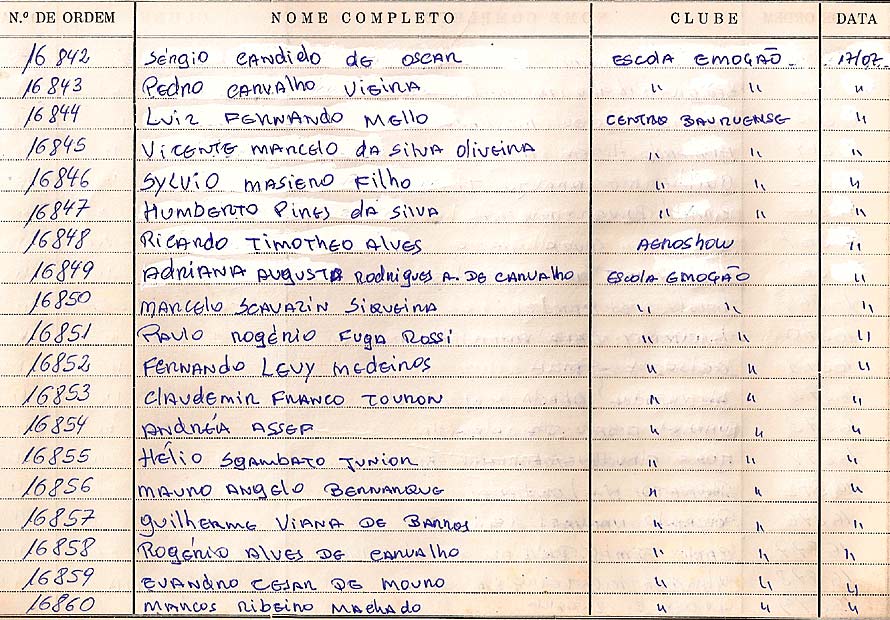 N.º DE ORDEM NOME COMPLETO CLUBE DATA
16 842 Sérgio Candido de Oscar Escola Emoção 17/07
16843 Pedro Carvalho Vieira " " "
16844 Luiz Fernando Mello Centro Bauruense "
16845 Vicente Marcelo da Silva Oliveira " " "
16846 Sylvio Masiero Filho " " "
16847 Humberto Pires da Silva " " "
16848 Ricardo Timotheo Alves Aeroshow "
16849 Adriana Augusta Rodrigues A. de Carvalho Escola Emoção "
16850 Marcelo Scavazin Siqueira " " "
16851 Paulo Rogério Fuga Rossi " " "
16852 Fernando Levy Medeiros " " "
16853 Claudemir Franco Touron " " "
16854 Andréa Assef " " "
16855 Hélio Sgambato Junior " " "
16856 Mauro Angelo Bernarque " " "
16857 Guilherme Viana de Barros " " "
16858 Rogério Alves de Carvalho " " "
16859 Evandro Cesar de Mouro " " "
16860 Marcos Ribeiro Machado " " "